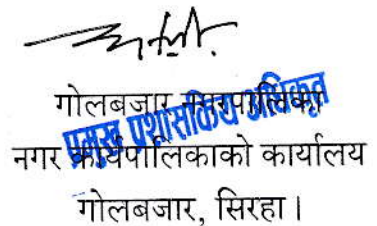 गोलबजार नगरपालिका
प्रमुख प्रशासकिय अधिकृत
नगर कार्यपालिकाको कार्यालय
गोलबजार, सिरहा।